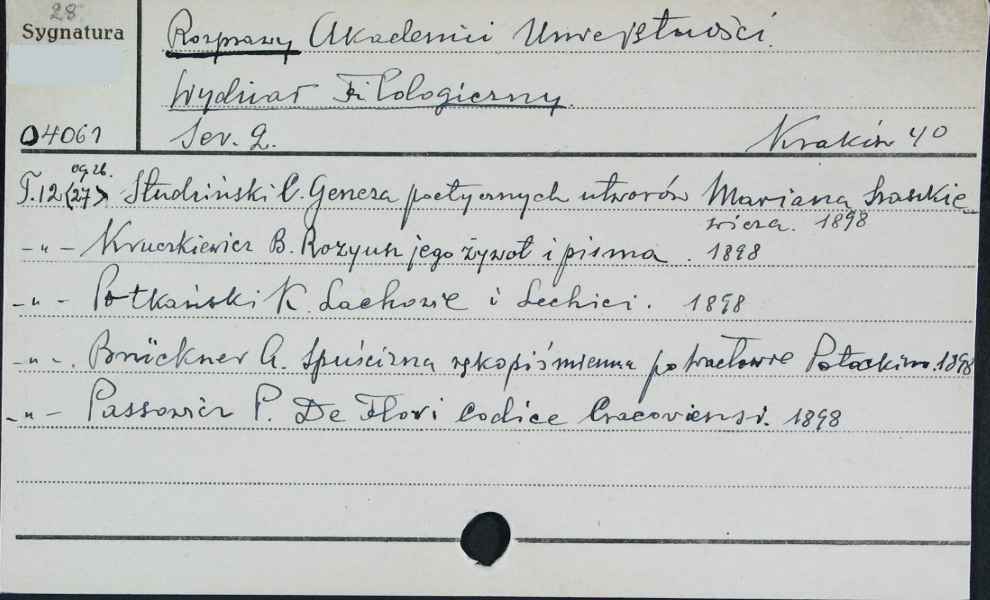 28
Sygnatura
Rozprawy Akademii Umiejętności.
Wydział Filologiczny.
04061
Ser. 2.
Kraków 4º
og. zb.
T.12 (27) Studziński C. Geneza poetycznych utworów Mariana Szaszkie-
wicza. 1898
-"- Kruczkiewicz B. Rozyusz jego żywot i pisma. 1898
-"- Potkański K. Lachowie i Lechici. 1898
-"-. Brückner A. Spuścizna rękopiśmienna po Wacławie Potockim. 1898
-"- Passowicz P. De Flori Codice Cracoviensi. 1898